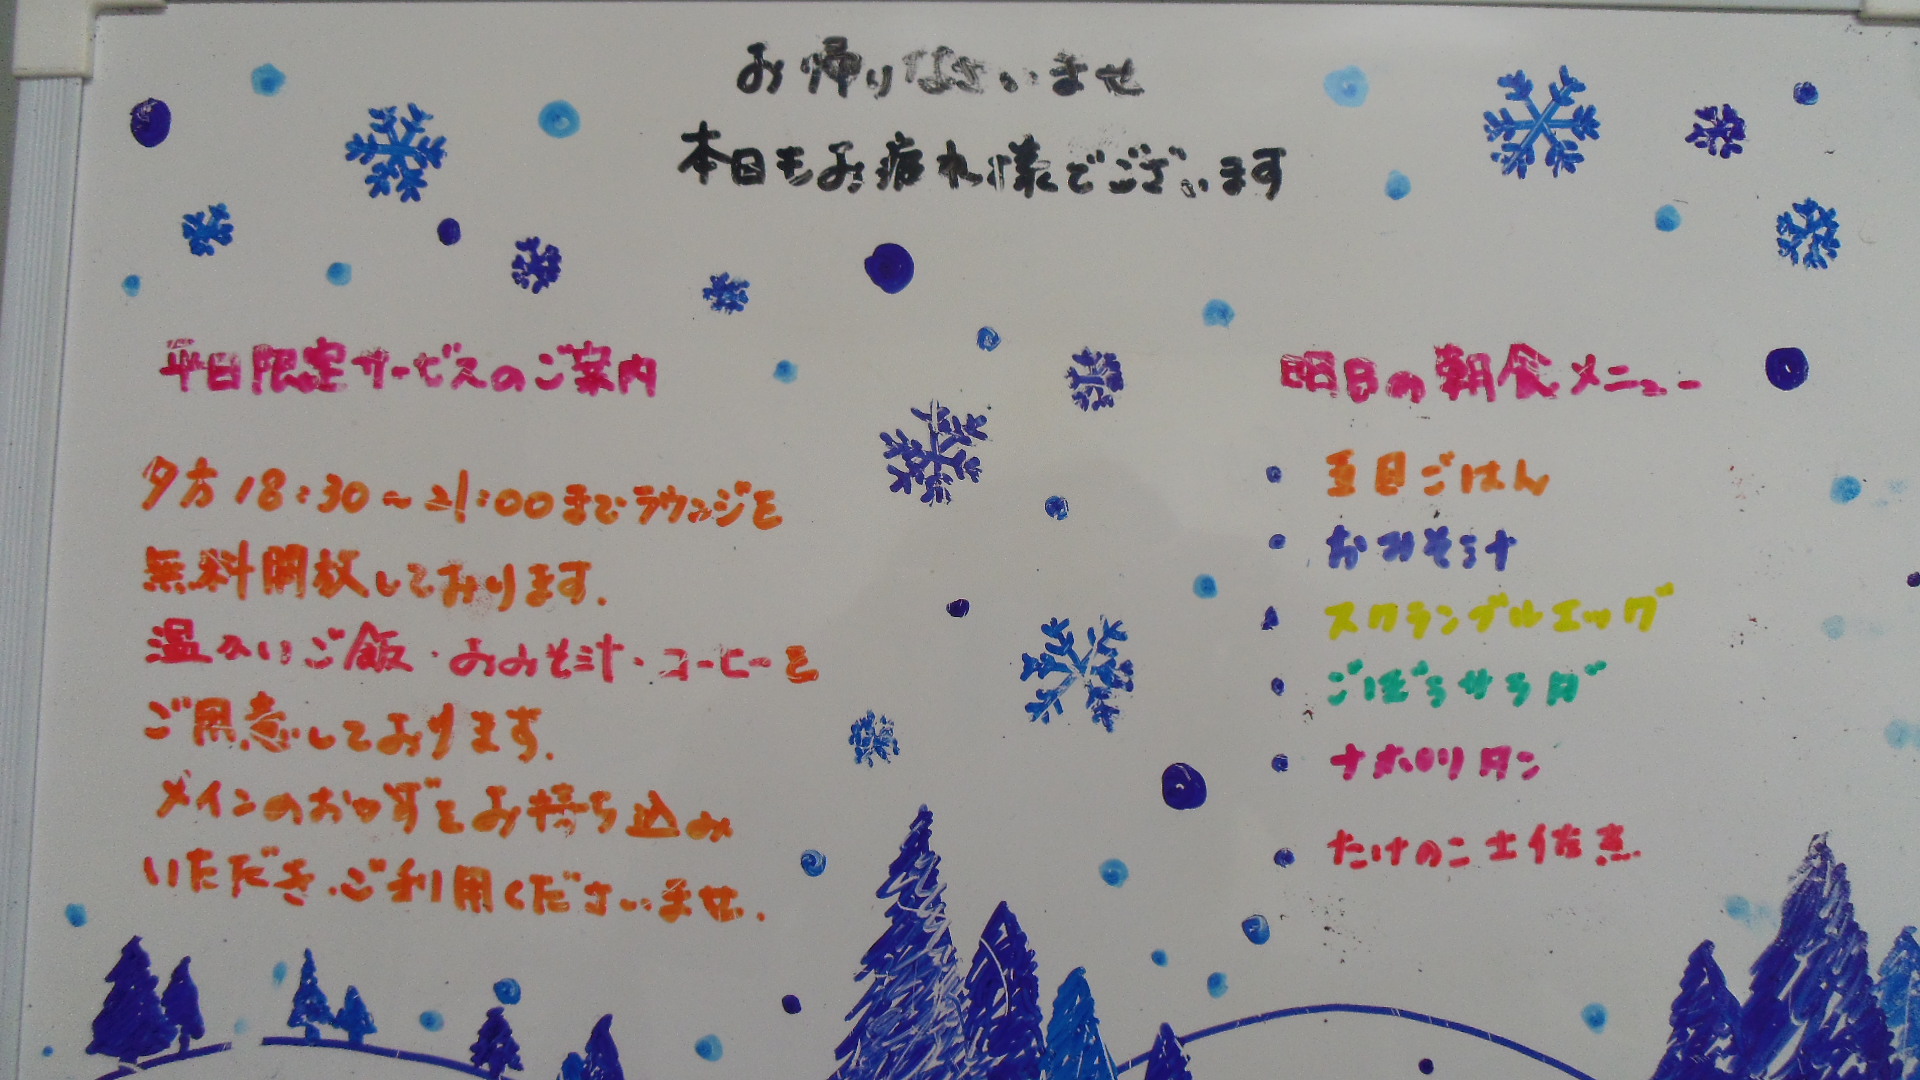 お帰りなさいませ
本日もお疲れ様でございます
平日限定サービスのご案内
夕方18:30～21:00までラウンジを
無料開放しております.
温かいご飯・おみそ汁・コーヒーを
ご用意しております.
メインのおかずをお持ち込み
いただき、ご利用くださいませ.
明日の朝食メニュー
・五目ごはん
・おみそ汁
・スクランブルエッグ
・ごぼうサラダ
・ナポリタン
・たけのこ土佐煮